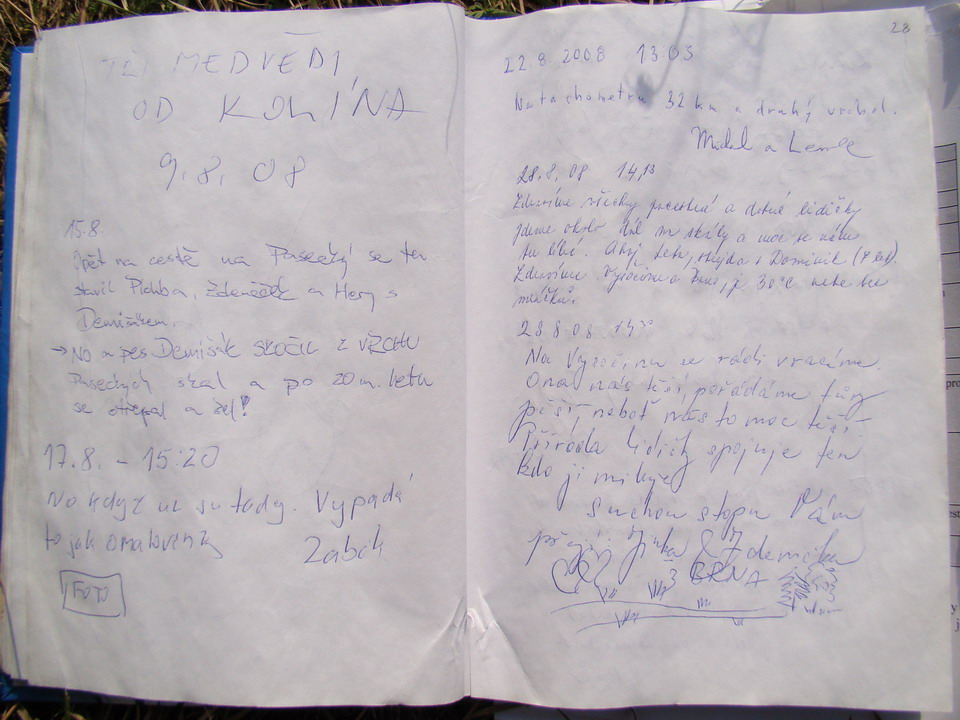 TŘI MEDVĚDI,
OD KOLÍNA
9.8.08
15.8.
Opět na cestě na Pasecký se tu
stavil Zdeněček a Hery s
Demišákem.
→ No a pes Demišák SKOČIL Z VRCHU
Paseckých skal a po 20 m. letu
se otřepal a žel!
17.8. - 15:20
No když už su tady. Vypadá
to jak omalovánky Zabch
FOTO
28
22 8 2008 13.05
Na tachometru 32 km a druhý vrchol.
a
28.8.08 14,13
Zdravíme všechny pocestné a dobré lidičky
Jdeme okolo dál na skály a moc se nám
tu líbí. Ahoj Dominik
Zdravíme Vysočinu 30°C nebe bez
mráčků.
28 8 08
Na Vysočinu se rádi vracíme.
Ona nás těší, pořádáme túry
pěší, neboť nás to moc těší
Příroda lidičky spojuje ten
kdo ji miluje
Suchou stopu Vám
přejí Jirka & Zdenička
z BRNA